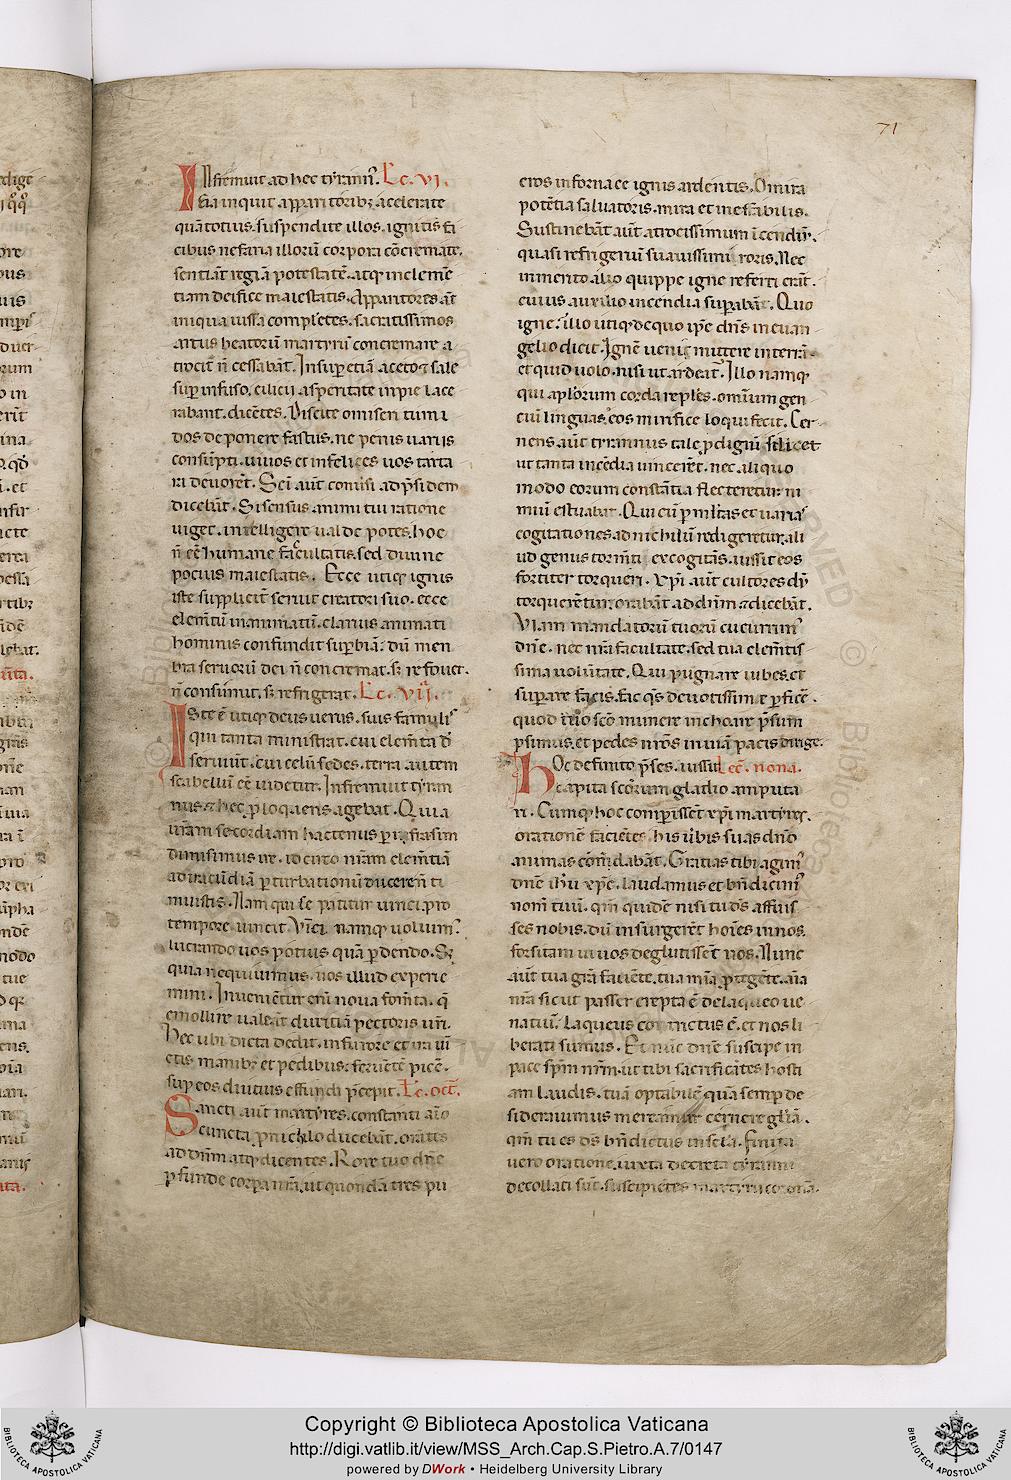 71
Infremuit ad hec tyrann᾽. Lc. VI.
Eia inquit apparitorib; accelerate
quā totius. suspendite illos. ignitis fa
cibus nefaria illorū corpora cōcremate.
sentiāt regiā potestatē. atq; inclemē
tiam deifice maiestatis. Apparitores aūt
iniqua iussa complētes. sacratissimos
artus beatorū martyrū concremare a
trociť ñ cessabāt. Insup etiā aceto & sale
sup infuso, cilicii asperitate inpie lace
rabant. dicētes. Discite o miseri tumi
dos deponere fastus. ne penis uariis
consūpti. uiuos et infelices uos tarta
ri deuorēt. Sci aūt conuisi ad p̄sidem
dicebāt. Si sensus animi tui ratione
uiget. intelligere ualde potes. hoc
ñ eē humane facultatis. sed diuine
pocius maiestatis. Ecce utiq; ignis
iste suppliciť seruit creatori suo. ecce
elemtū inanimatū. clarius animati
hominis confundit supbiā. dū mem
bra seruorū dei ñ concremat. s; refouet.
ñ consumit. s; refrigerat. Lc. VII.
Iste ē utiq; deus uerus. suis famulis
qui tanta ministrat. cui elemta d̄
seruiūt. cui celū sedes. terra autem
scabellū eē uidetur. Infremuit tyran
nus & hec proloquens agebat. Quia
uram secordiam hactenus p n̄ frasim
dimisimus ire. idcirco nram elemtiā
ad iracūdiā pturbationū ducere n̄ ti
muistis. Nam qui se patitur uinci. pro
tempore uincit. Vinci namq; uoluim᾽.
lucrando uos potius quā pdendo. S;
quia nequiuimus. uos illud experie
mini. Inuenietur eni noua forma. q̄
emollire ualeat duritiā pectoris uri.
Hec ubi dicta dedit. in furore et ira uī
ctis manib; et pedibus. feruētē picē.
sup eos diutius effundi p̄cepit. Lc. oct̄.
Sancti aūt martyres. constanti aīo
cuncta p nichilo ducebāt. orātes
ad dn̄m atq; dicentes. Rore tuo dn̄e
pfunde corpa nr̄a. ut quondā tres pu
eros in fornace ignis ardentis. O mira
potētia saluatoris. mira et ineffabilis.
Sustinebāt aūt atrocissimum īcendiū.
quasi refrigeriū suauissimi roris. Nec
inmerito. alio quippe igne referti erāt.
cuius auxilio incendia supabāt. Quo
igne? illo utiq; de quo ip̄e dn̄s in euan
gelio dicit. Ignē ueni mittere in terrā.
et quid uolo. nisi ut ardeat? Illo namq;
qui aplorum corda replēs. omnium gen
ciū linguas. eos mirifice loqui fecit. Cer
nens aūt tyrannus tale pdigiū scilicet
ut tanta incēdia uincerēt. nec aliquo
modo eorum constātia flecteretur. ni
miū estuabat. Qui cū p multas et uarias
cogitationes ad nichilū redigeretur. ali
ud genus tormti excogitās. iussit eos
fortiter torqueri. Xp̄i aūt cultores dū
torquerētur. orabāt ad dn̄m & dicebāt.
Viam mandatorū tuorū cucurrim᾽
dn̄e. nec nr̄a facultate. sed tua elemtis
sima uolūtate. Qui pugnare iubes. et
supare facis. fac q̄s deuotissime pficē.
quod tuo sc̄o munere inchoare p̄sum
psimus. et pedes nr̄os in uiā pacis dirige.
Hoc definito p̄ses. iussit Lec̄. nona.
capita sc̄orum gladio amputa
ri. Cumq; hoc comperissēt xp̄i martyres.
orationē faciētes. his ūbis suas dn̄o
animas comdabāt. Gratias tibi agim᾽
dn̄e ih̄u xp̄e. laudamus et bn̄dicim᾽
nom̄ tuū. qm̄ quidē nisi tu ds̄ affuis
ses nobis. dū insurgerēt hoīes in nos.
forsitam uiuos deglutissēt nos. Nunc
aūt tua gr̄a fauēte. tua mīa ptegēte. aīa
nr̄a sicut passer erepta ē de laqueo ue
natiū. Laqueus contrictus ē. et nos li
berati sumus. Et nūc dn̄e suscipe in
pace sp̄m nrm̄. ut tibi sacrificātes hosti
am laudis. tuā optabilē quā semp de
siderauimus mereamur cernere glīā.
qm̄ tu es ds̄ bn̄dictus in sc̄la. Finita
uero oratione. iuxta decreta tyranni
decollati sūt. suscipiētes martyrii coronā.
Copyright © Biblioteca Apostolica Vaticana
http://digi.vatlib.it/view/MSS_Arch.Cap.S.Pietro.A.7/0147
powered by DWork • Heidelberg University Library
BIBLIOTECA APOSTOLICA VATICANA
BIBLIOTECA APOSTOLICA VATICANA